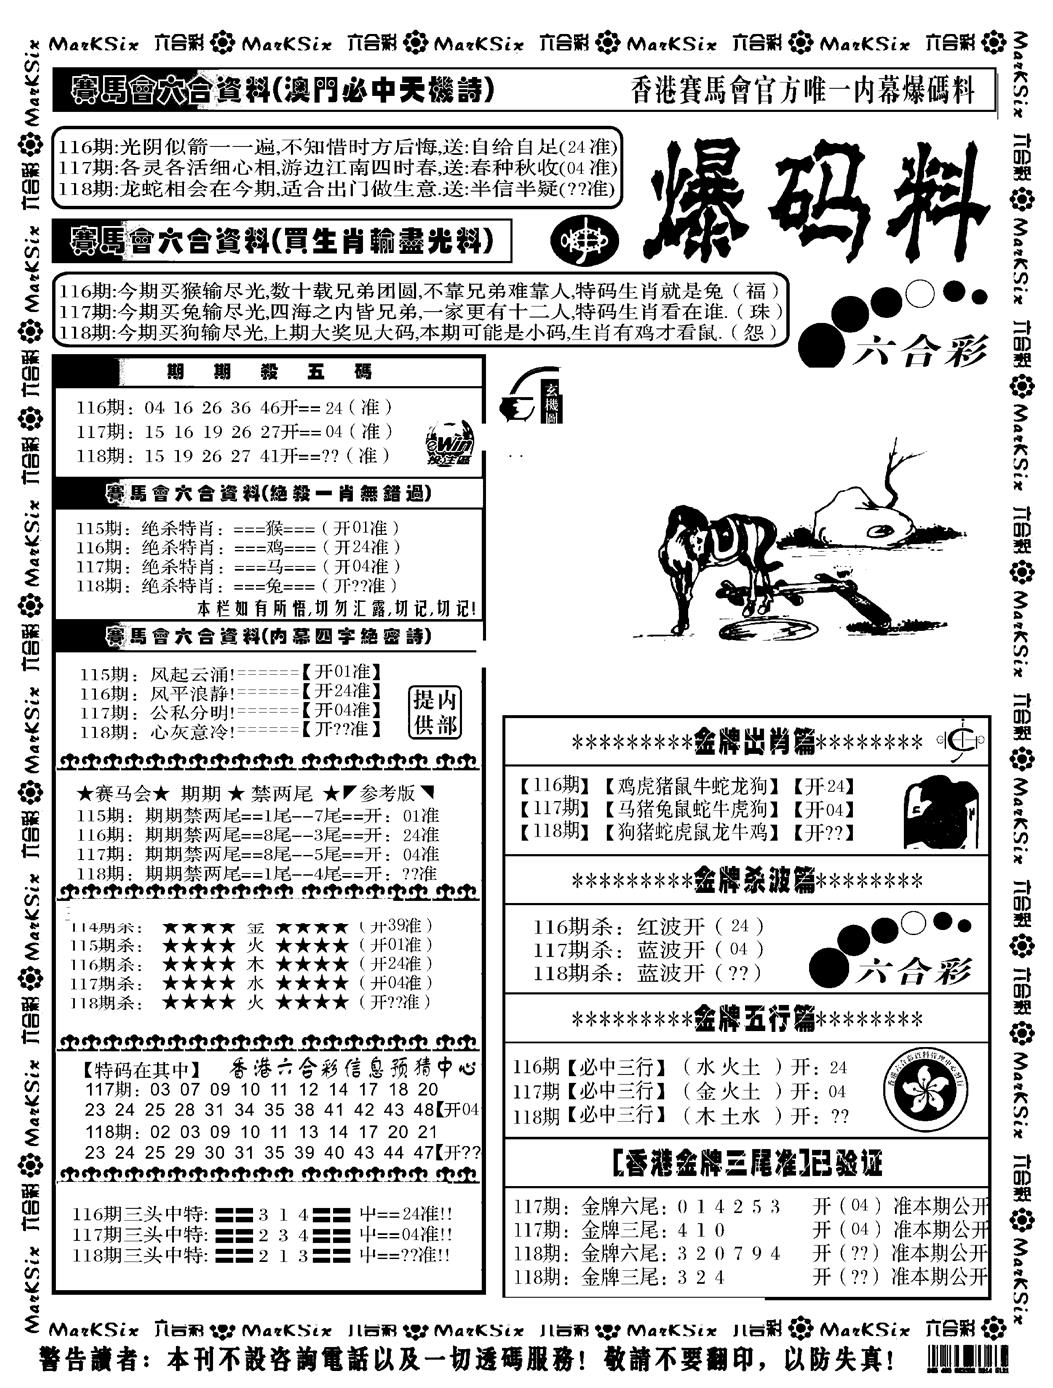 MarKSix 六合彩 MarKSix 六合彩 MarKSix 六合彩 MarKSix 六合彩 MarKSix 六合彩
賽馬會六合資料(澳門必中天機詩)
香港賽馬會官方唯一内幕爆碼料
116期:光阴似箭一一遍,不知惜时方后悔,送:自给自足(24准)
117期:各灵各活细心相,游边江南四时春,送:春种秋收(04准)
118期:龙蛇相会在今期,适合出门做生意,送:半信半疑(??准)
爆码料
賽馬會六合資料(買生肖輸盡光料)
116期:今期买猴输尽光,数十载兄弟团圆,不靠兄弟难靠人,特码生肖就是兔（福）
117期:今期买兔输尽光,四海之内皆兄弟,一家更有十二人,特码生肖看在谁.（珠）
118期:今期买狗输尽光,上期大奖见大码,本期可能是小码,生肖有鸡才看鼠.（怨）
六合彩
期期殺五碼
116期: 04 16 26 36 46开==24（准）
117期: 15 16 19 26 27开==04（准）
118期: 15 19 26 27 41开==??（准）
eWin
投注區
玄機圖
賽馬會六合資料(絕殺一肖無錯過)
115期: 绝杀特肖: ===猴===（开01准）
116期: 绝杀特肖: ===鸡===（开24准）
117期: 绝杀特肖: ===马===（开04准）
118期: 绝杀特肖: ===兔===（开??准）
本栏如有所悟,切勿汇露,切记,切记!
賽馬會六合資料(内幕四字絕密詩)
115期: 风起云涌!======【开01准】
116期: 风平浪静!======【开24准】
117期: 公私分明!======【开04准】
118期: 心灰意冷!======【开??准】
内部提供
★赛马会★ 期期 ★ 禁两尾 ★◤参考版◥
115期: 期期禁两尾==1尾--7尾==开: 01准
116期: 期期禁两尾==8尾--3尾==开: 24准
117期: 期期禁两尾==8尾--5尾==开: 04准
118期: 期期禁两尾==1尾--4尾==开: ??准
114期杀: ★★★★ 金 ★★★★（开39准）
115期杀: ★★★★ 火 ★★★★（开01准）
116期杀: ★★★★ 木 ★★★★（开24准）
117期杀: ★★★★ 水 ★★★★（开04准）
118期杀: ★★★★ 火 ★★★★（开??准）
【特码在其中】 香港六合彩信息预猜中心
117期: 03 07 09 10 11 12 14 17 18 20
23 24 25 28 31 34 35 38 41 42 43 48【开04
118期: 02 03 09 10 11 13 14 17 20 21
23 24 25 29 30 31 35 39 40 43 44 47【开??
116期三头中特: 〓〓3 1 4〓〓 中==24准!!
117期三头中特: 〓〓2 3 4〓〓 中==04准!!
118期三头中特: 〓〓2 1 3〓〓 中==??准!!
*********金牌出肖篇********
【116期】【鸡虎猪鼠牛蛇龙狗】【开24】
【117期】【马猪兔鼠蛇牛虎狗】【开04】
【118期】【狗猪蛇虎鼠龙牛鸡】【开??】
*********金牌杀波篇********
116期杀: 红波开（24）
117期杀: 蓝波开（04）
118期杀: 蓝波开（??）
六合彩
*********金牌五行篇********
116期【必中三行】（水火土）开: 24
117期【必中三行】（金火土）开: 04
118期【必中三行】（木土水）开: ??
[香港金牌三尾准]已验证
117期: 金牌六尾: 0 1 4 2 5 3 开（04）准本期公开
117期: 金牌三尾: 4 1 0 开（04）准本期公开
118期: 金牌六尾: 3 2 0 7 9 4 开（??）准本期公开
118期: 金牌三尾: 3 2 4 开（??）准本期公开
MarKSix 六合彩 MarKSix 六合彩 MarKSix 六合彩 MarKSix 六合彩 MarKSix 六合彩
警告讀者: 本刊不設咨詢電話以及一切透碼服務! 敬請不要翻印, 以防失真!